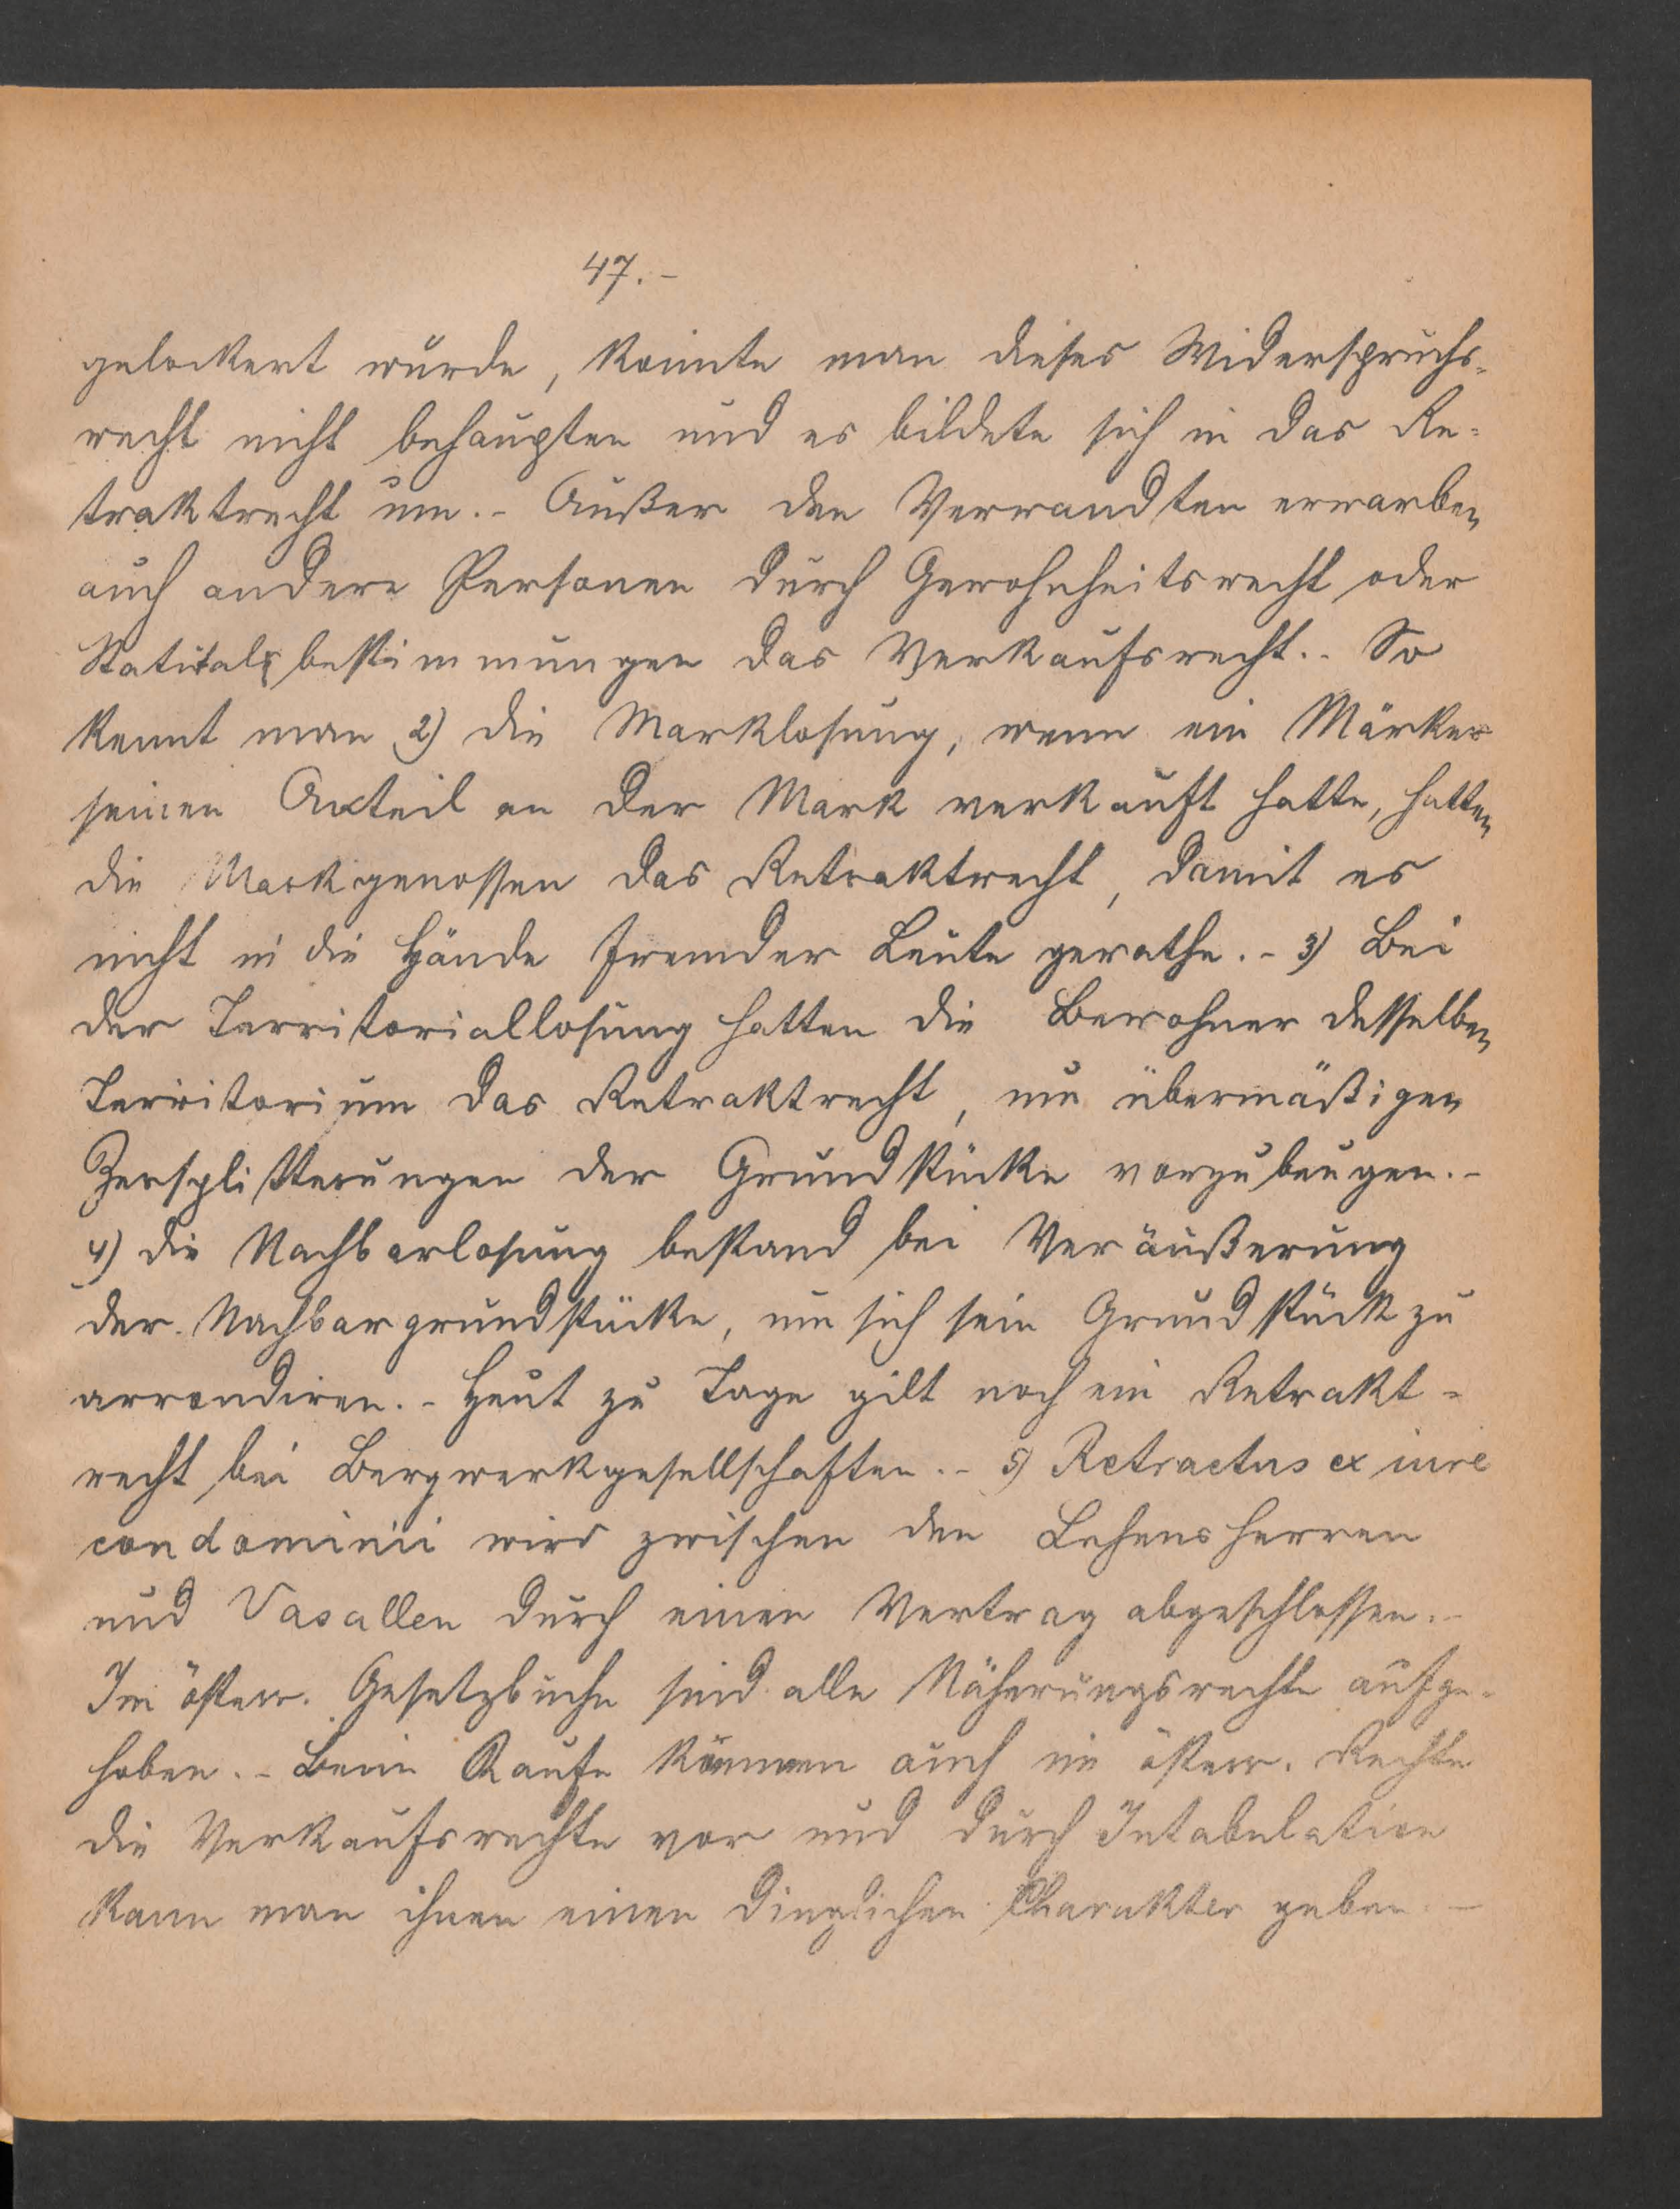 47.-
gelockert wurde, konnte man dieses Widerspruchs-
recht nicht behaupten und es bildete sich in das Re-
traktrecht um.- Außer den Verwandten erwarben
auch andere Personen durch Gewohnheitsrecht oder
bestimmungen das Verkaufsrecht.- So
kennt man 2) die Marklosung, wenn ein Märker
seinen Anteil an der Mark verkauft hatte, hatten
die Markgenossen das Retraktrecht, damit es
nicht in die Hände fremder Leute gerathe.- 3) Bei
der Territoriallosung hatten die Bewohner desselben
Territorium das Retraktrecht, um übermäßigen
Zersplitterungen der Grundstücke vorzubeugen.-
4) die Nachbarlosung bestand bei Veräußerung
der Nachbargrundstücke, um sich sein Grundstück zu
arrondiren.- Heut zu Tage gilt noch ein Retrakt-
recht bei Bergwerkgesellschaften.- 5) Retractus ex iure
condominii wird zwischen den Lehensherren
und Vasallen durch einen Vertrag abgeschlossen.-
Im österr. Gesetzbuche sind alle Näherungsrechte aufge-
hoben.- Beim Kaufe kommen auch im österr. Rechte
die Verkaufsrechte vor und durch Intabulation
kann man ihnen einen dinglichen Charakter geben.-